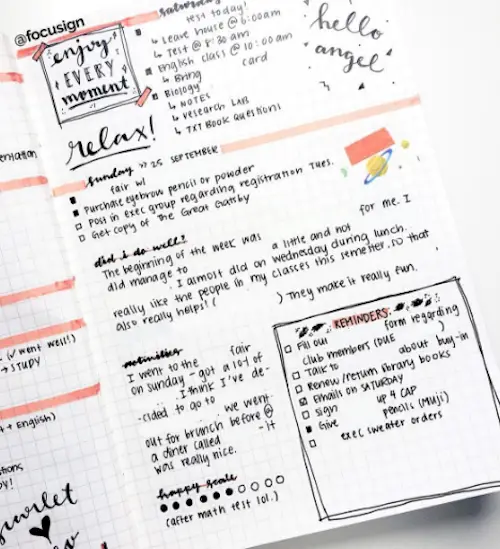 @focusign
enjoy
EVERY
moment
relax!
saturday
test today!
↳ Leave house @ 6:00am
↳ Test @ 8:30 am
English class @ 10:00 am
↳ Bring card
Biology
↳ NOTES
↳ research LAB
↳ TXT BOOK Questions
hello
angel
sunday >> 25 SEPTEMBER
fair w/
Purchase eyebrow pencil or powder
Post in exec group regarding registration Tues.
Get copy of The Great Gatsby
did i do well?
The beginning of the week was a little and not for me. I
did manage to Wednesday during lunch.
I almost did an
really like the people in my classes this semester, so that
also really helps! ( ) They make it really fun.
activities
I went to the fair
on sunday - got a lot of
. I think I've de-
-cided to go to
we went
out for brunch before @
a diner called - it
was really nice.
happy scale
(after math test lol.)
REMINDERS
Fill out form regarding
club members (DUE )
Talk to about buy-in
Renew/return library books
Emails on SATURDAY
Sign up 4 CAP
Give pencils (Muji)
exec sweater orders
(✓ went well!)
→ STUDY
+ English)